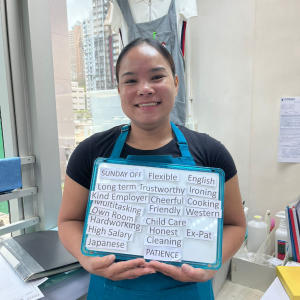 SUNDAY OFF Flexible English
Long term Trustworthy Ironing
Kind Employer Cheerful Cooking
Multitasking Friendly Western
Own Room Child Care
Hardworking Honest Ex-Pat
High Salary Cleaning
Japanese PATIENCE